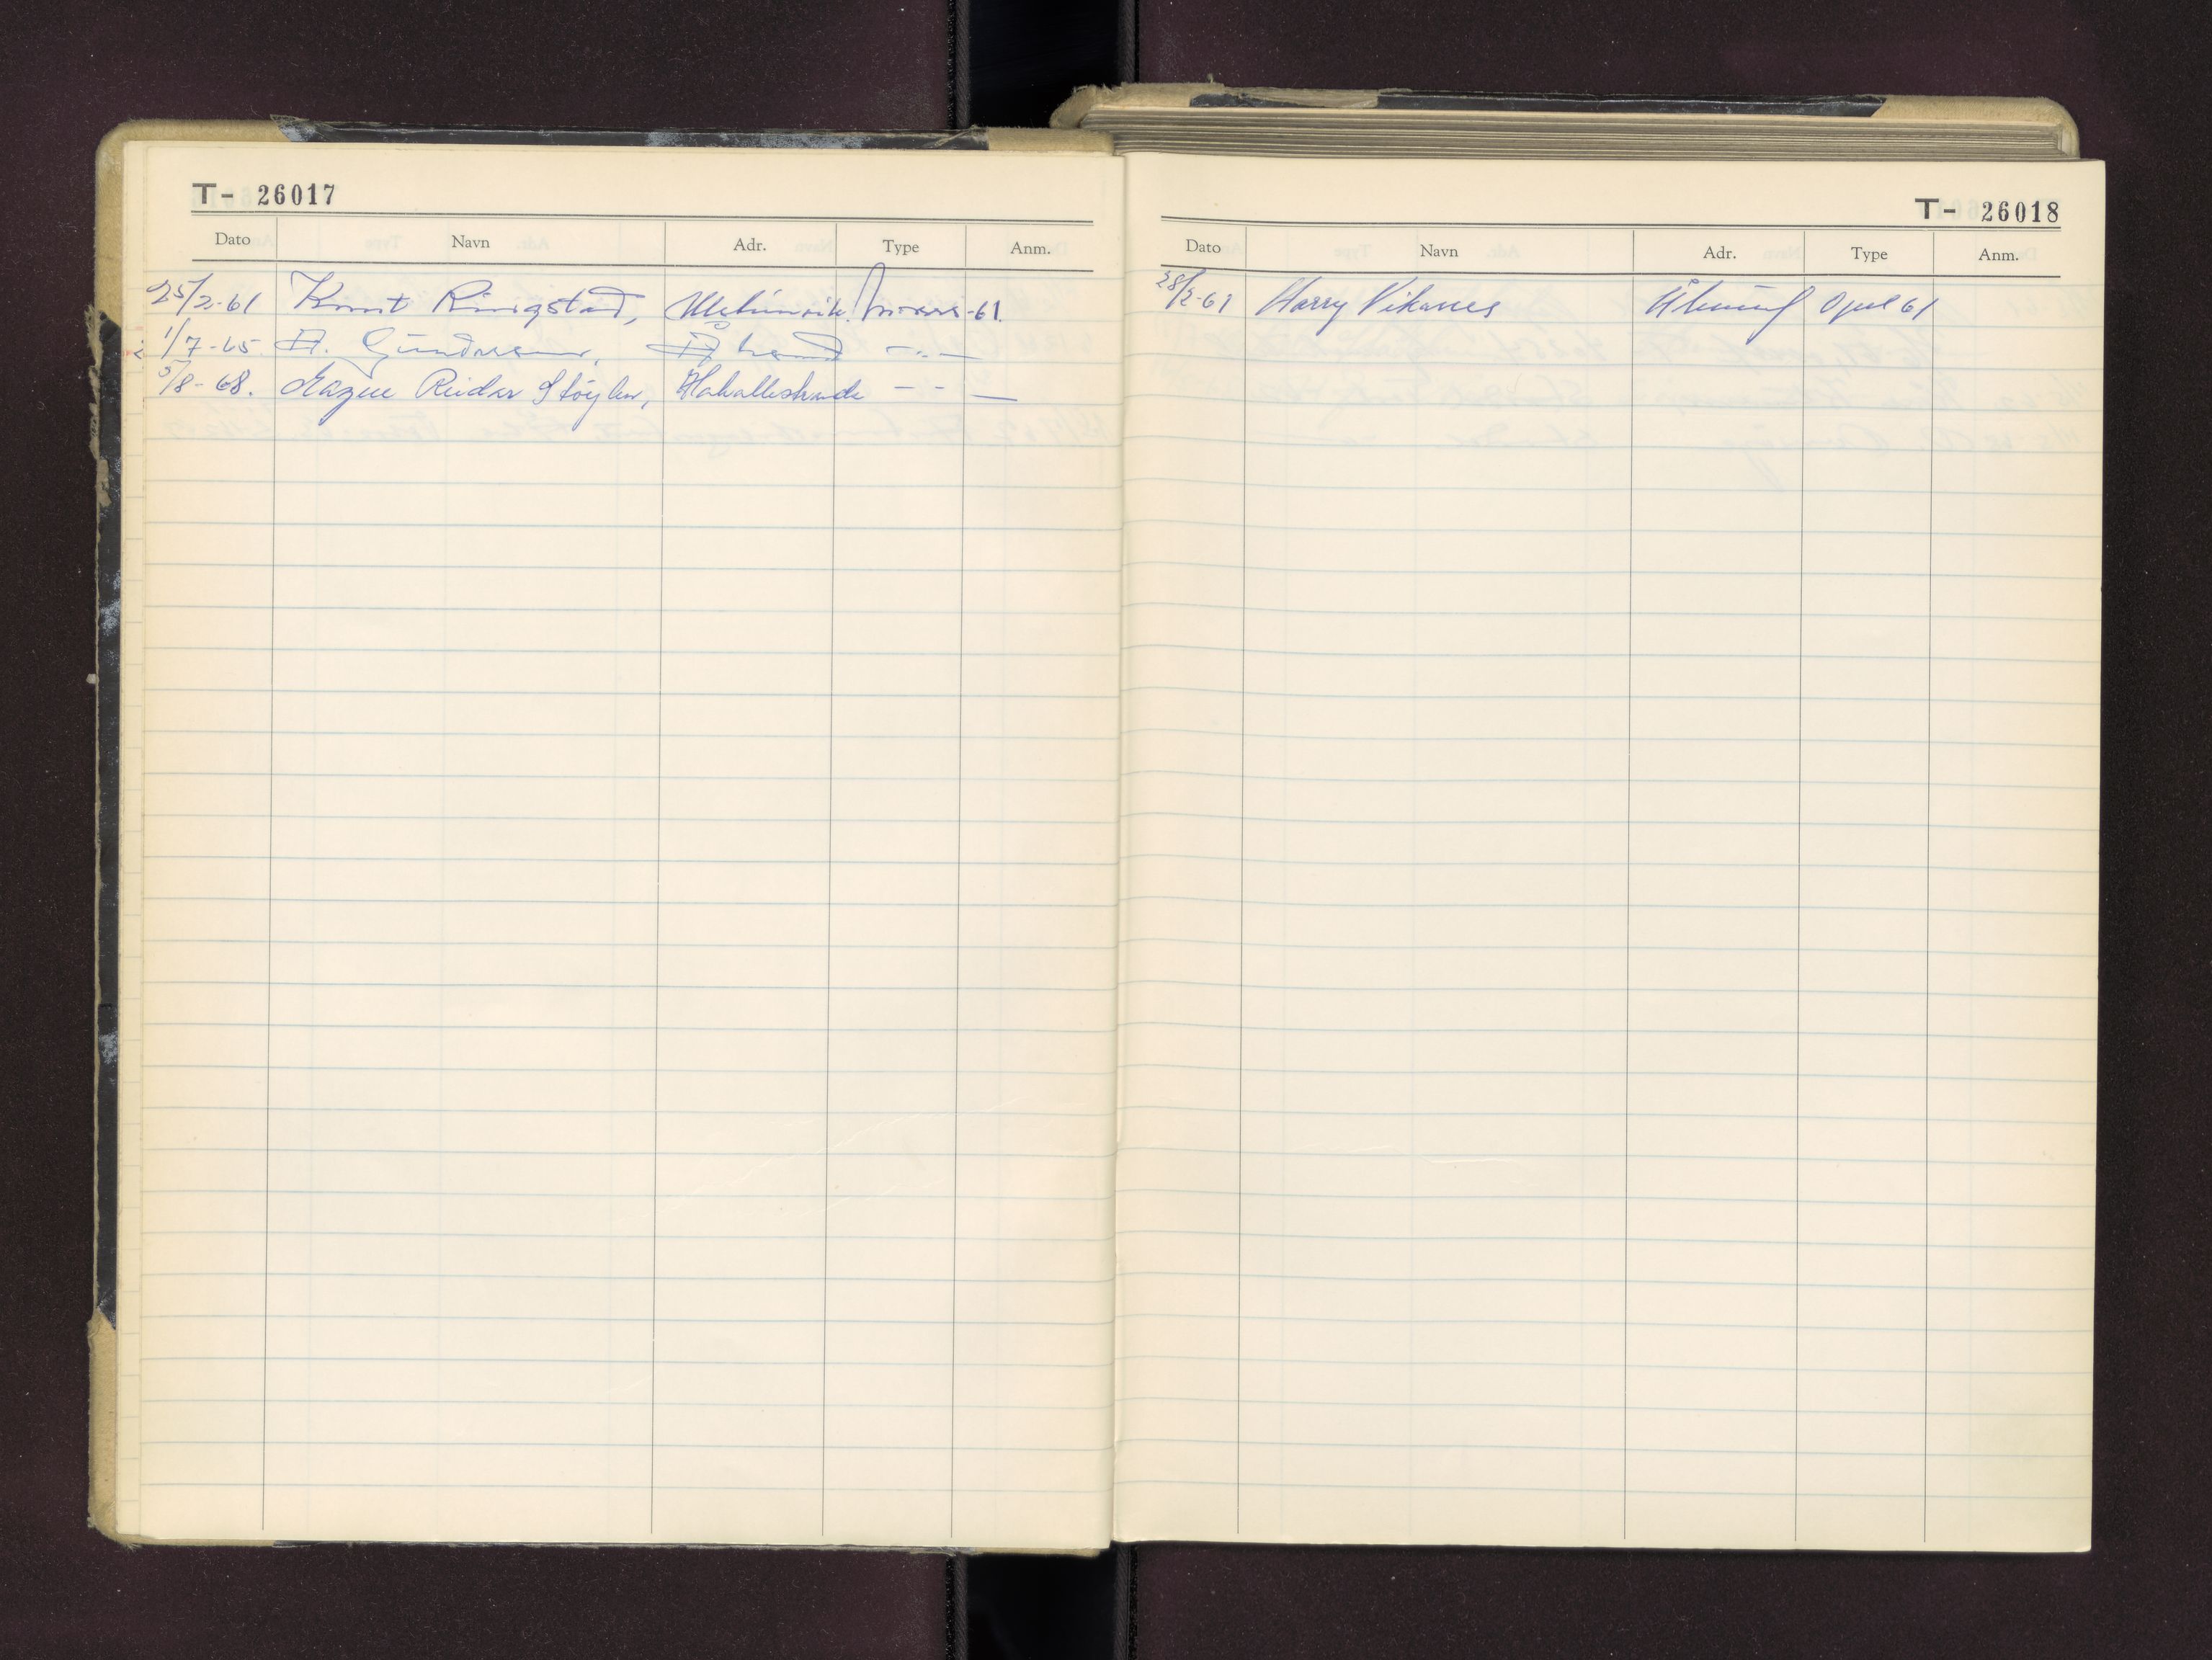 T- 26017
Dato Navn Adr. Type Anm.
25/2-61 Knut Ringstad, -61.
1/7-65 A. Gundersen, — " —
5/8-68. Magne Reidar Støylen, Hakallestrande — - —
T- 26018
Dato Navn Adr. Type Anm.
28/2-61 Harry Vikanes Opel 61